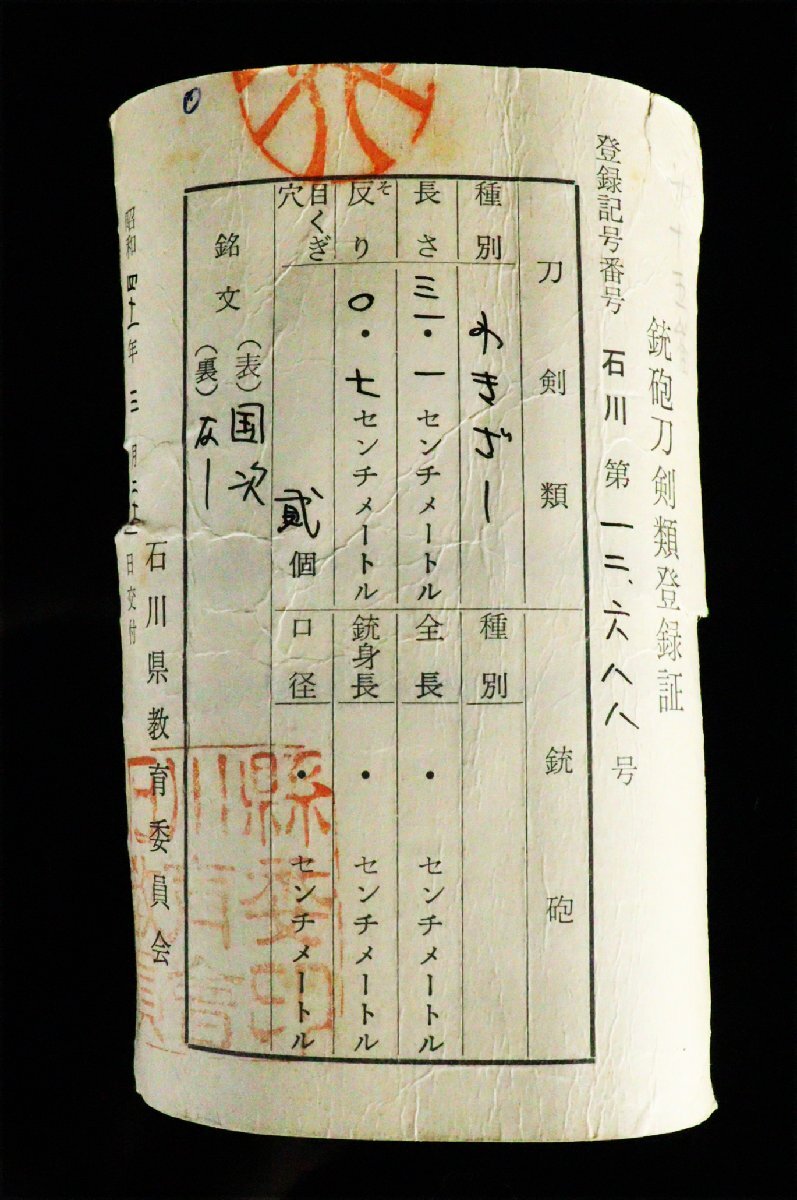 銃砲刀剣類登録証
登録記号番号 石川 第 一二、六八八 号
刀剣類
種別 わきざし
長さ 三一・一 センチメートル
反り 〇・七 センチメートル
そ
目くぎ穴 貳個
銘文 (表) 国次
(裏) なし
銃砲
種別
全長 ・ センチメートル
銃身長 ・ センチメートル
口径 ・ センチメートル
昭和四十一年三月二十一日交付
石川県教育委員会